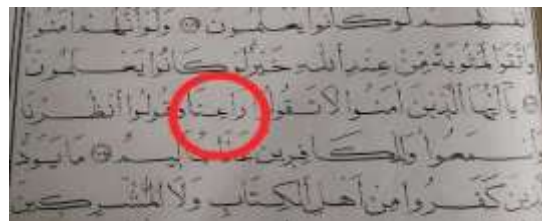 أنفسهم لو كانوا يعلمون ولو أنهم ءامنوا
واتقوا لمثوبة من عند الله خير لو كانوا يعلمون
يا أيها الذين آمنوا لا تقولوا راعنا وقولوا انظرنا
واسمعوا وللكافرين عذاب أليم ما يود
الذين كفروا من أهل الكتاب ولا المشركين